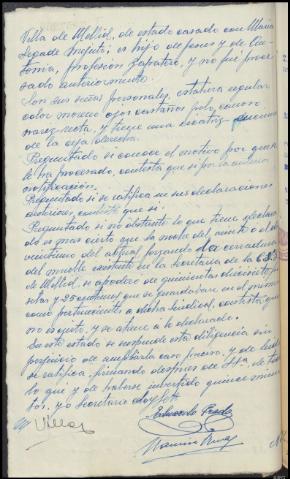 Villa de Mellid, de estado casado con María
Segade Mejuto, es hijo de Jesus y de An-
tonia, profesión Zapatero, y no fué proce-
sado anteriormente.
Son sus señas personales, estatura regular
color moreno ojos castaños pelo canoso
nariz recta, y tiene una cicatriz encima
de la ceja derecha.
Preguntado si conoce el motivo por que se
le ha procesado, contesta que si por la anterior
notificación.
Preguntado si se ratifica en sus declaraciones
anteriores, contesta que si.
Preguntado si no obstante lo que tiene declara-
do es mas cierto que la noche del veinte al
veintiuno del actual forzando la cerradura
del mueble existente en la Secretaria de la
de Mellid, se apodero de quinientas diecisiete pe-
setas y 25 centimos que se guardaban en el mismo
como pertenecientes a dicha Sindical, contesta que
no es cierto, y se atiene a lo declarado.
En este estado se suspende esta diligencia sin
perjuicio de ampliarla caso preciso, y de leida
se ratifica, firmando despues de S.Sª., de todo
lo que y de haberse invertido quince minu-
tos, yo Secretario doy fe.